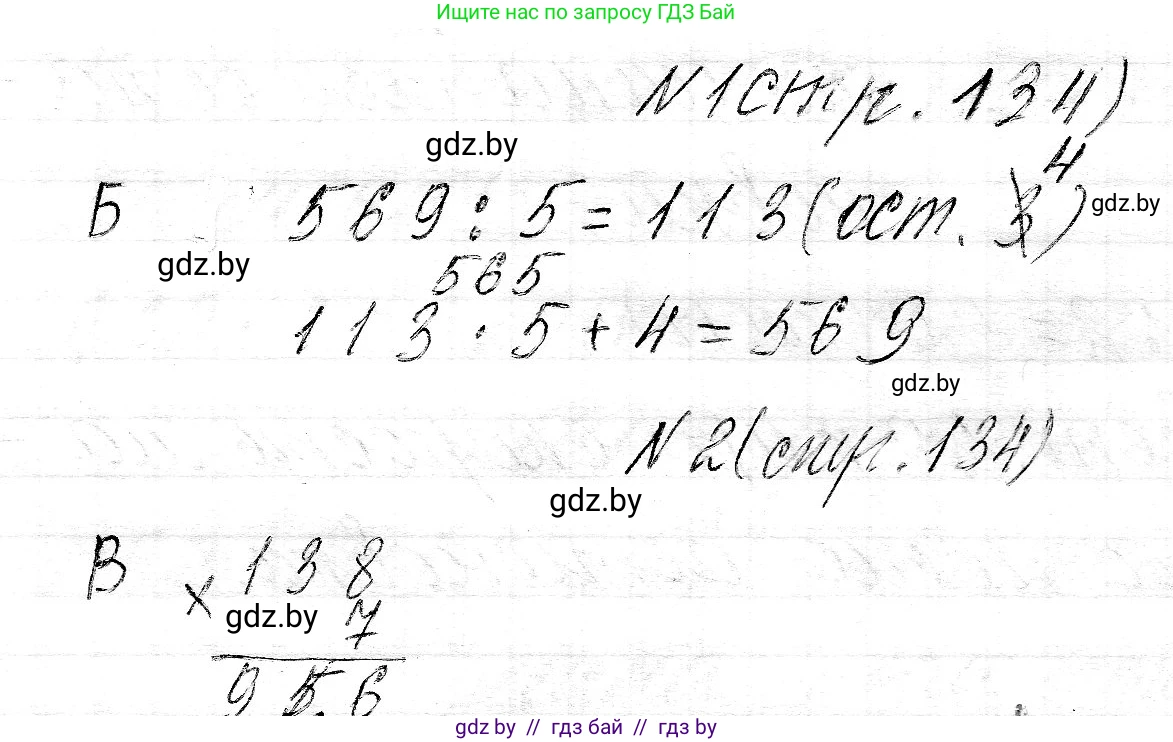 Ищите нас по запросу ГДЗ Бай
N1(стр. 134)
gdz.by
4
Б 569 : 5 = 113 (ост. 3) gdz.by
gdz.by 565
113 · 5 + 4 = 569
gdz.by
N2(стр. 134)
gdz.by
В × 138
gdz.by 7
956
gdz.by // гдз бай // гдз by